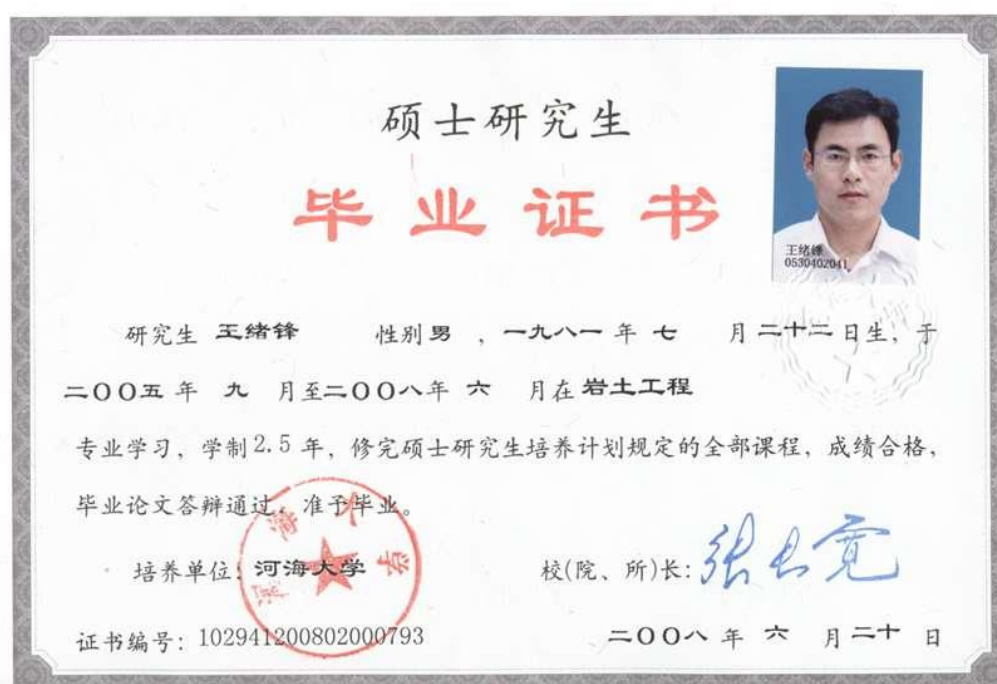 硕士研究生
毕业证书
王绪锋
0530402041
研究生 王绪锋 性别 男 ，一九八一 年 七 月 二十二 日生，于
二〇〇五 年 九 月至二〇〇八年 六 月在 岩土工程
专业学习，学制2.5 年，修完硕士研究生培养计划规定的全部课程，成绩合格，
毕业论文答辩通过，准予毕业。
河海大学
培养单位：河海大学
校(院、所)长：张长宽
证书编号：102941200802000793
二〇〇八 年 六 月 二十 日